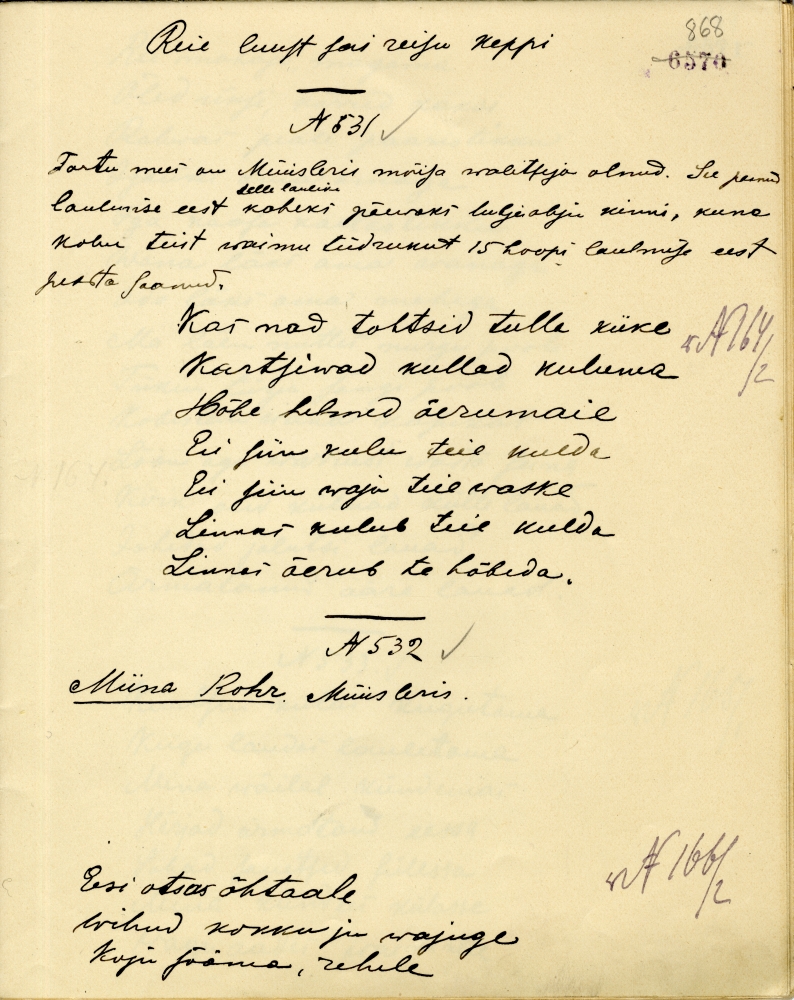 868
6570
Reie luust sai reisu keppi
N 531
Tartu mees on Müüsleris mõisa walitseja olnud. See pannud
selle laulise
laulmise eest kaheks päewaks luhjeahju kinni, kuna
kolm teist waimu tüdrukut 15 hoopi laulmise eest
peksta saanud.
Kas nad tohtsid tulla siike
Kartsiwad kullad kuluma
Hõbe helmed äerumaie
Ei siin kulu teie kulda
Ei siin waju teie waske
Linnas kulub teie kulda
Linnas äerub te hõbeda.
N 764/2
N 532
Miina Rohr. Müüsleris.
Eesi otsas õhtaale
wihud kokku ju wajuge
Koju sööma, rehele
N 166/2